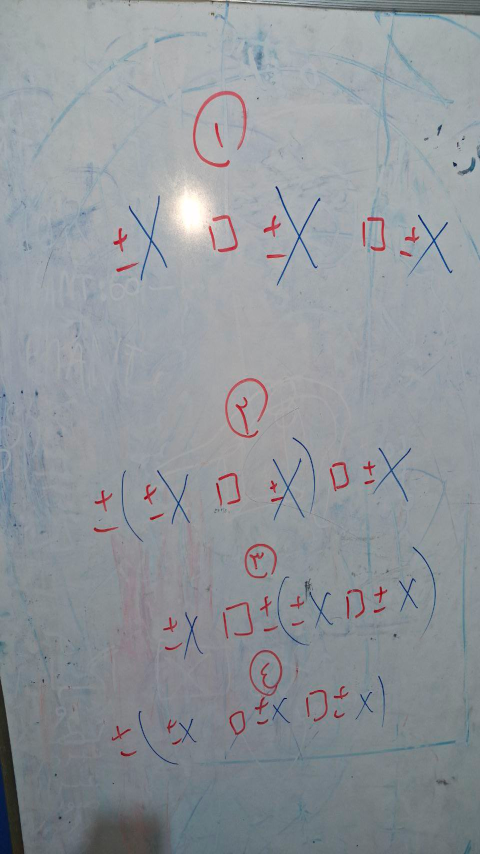 ١
± X □ ± X □ ± X
٢
± ( ± X □ ± X ) □ ± X
٣
± X □ ± ( ± X □ ± X )
٤
± ( ± X □ ± X □ ± X )